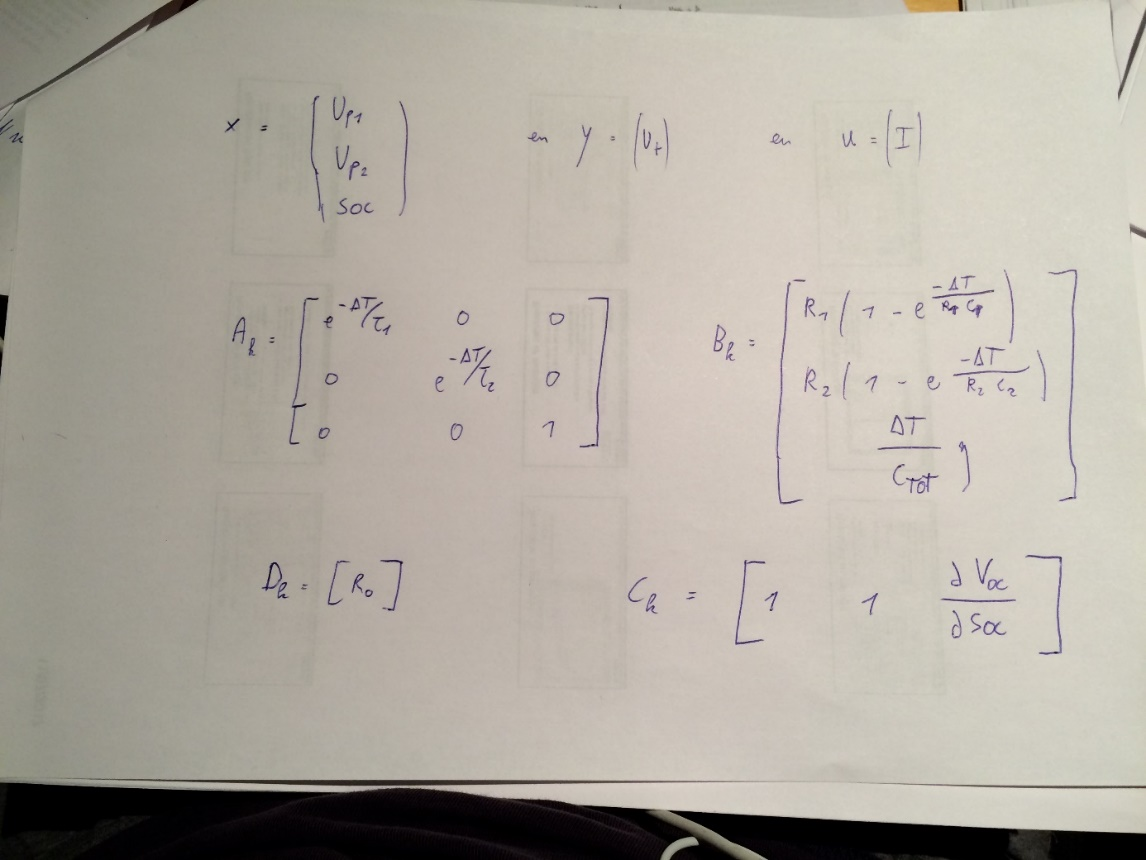 x = ( U_P1 U_P2 SOC ) en y = (U_t) en u = (I)
A_k = [ e^(-ΔT/τ_1) 0 0
0 e^(-ΔT/τ_2) 0
0 0 1 ]
B_k = [ R_1 ( 1 - e^(-ΔT/(R_1 C_1)) )
R_2 ( 1 - e^(-ΔT/(R_2 C_2)) )
ΔT/C_TOT η ]
D_k = [R_0]
C_k = [ 1 1 ∂V_oc/∂SOC ]